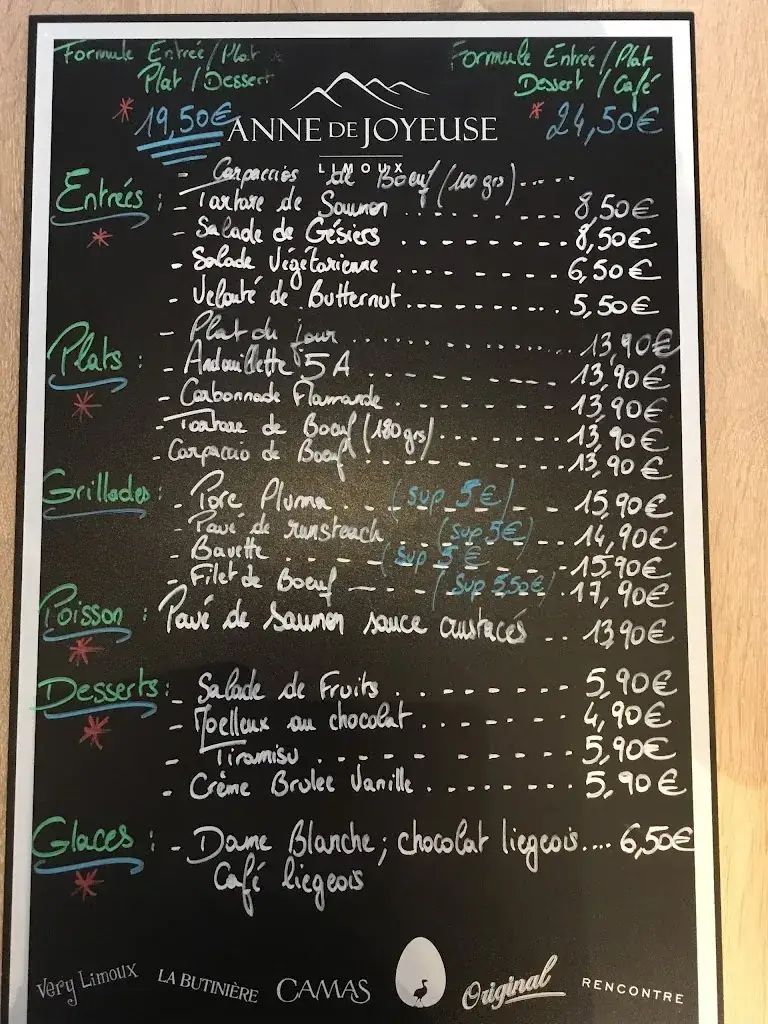 Formule Entrée/Plat
Plat/Dessert
* 19,50€
Formule Entrée/Plat
Dessert/Café
* 24,50€
ANNE DE JOYEUSE
LIMOUX
Entrées : *
- Carpaccios de Boeuf (100 grs).....
- Tartare de Saumon ........ 8,50€
- Salade de Gésiers ........ 8,50€
- Salade Végétarienne ........ 6,50€
- Velouté de Butternut ........ 5,50€
Plats : *
- Plat du jour ........ 13,90€
- Andouillette 5A ........ 13,90€
- Carbonnade Flamande ........ 13,90€
- Tartare de Boeuf (180grs) ........ 13,90€
- Carpaccio de Boeuf ........ 13,90€
Grillades :
- Porc Pluma (sup 5€) ........ 15,90€
- Pavé de rumsteack (sup 5€) ........ 14,90€
- Bavette (sup 5€) ........ 15,90€
- Filet de Boeuf (sup 5,50€) ........ 17,90€
Poisson : * Pavé de saumon sauce crustacés .. 13,90€
Desserts : *
- Salade de Fruits ........ 5,90€
- Moelleux au chocolat ........ 4,90€
- Tiramisu ........ 5,90€
- Crème Brulee Vanille ........ 5,90€
Glaces : * - Dame Blanche ; chocolat liegeois.... 6,50€
Café liegeois
Very Limoux
LA BUTINIÈRE
CAMAS
Original
RENCONTRE